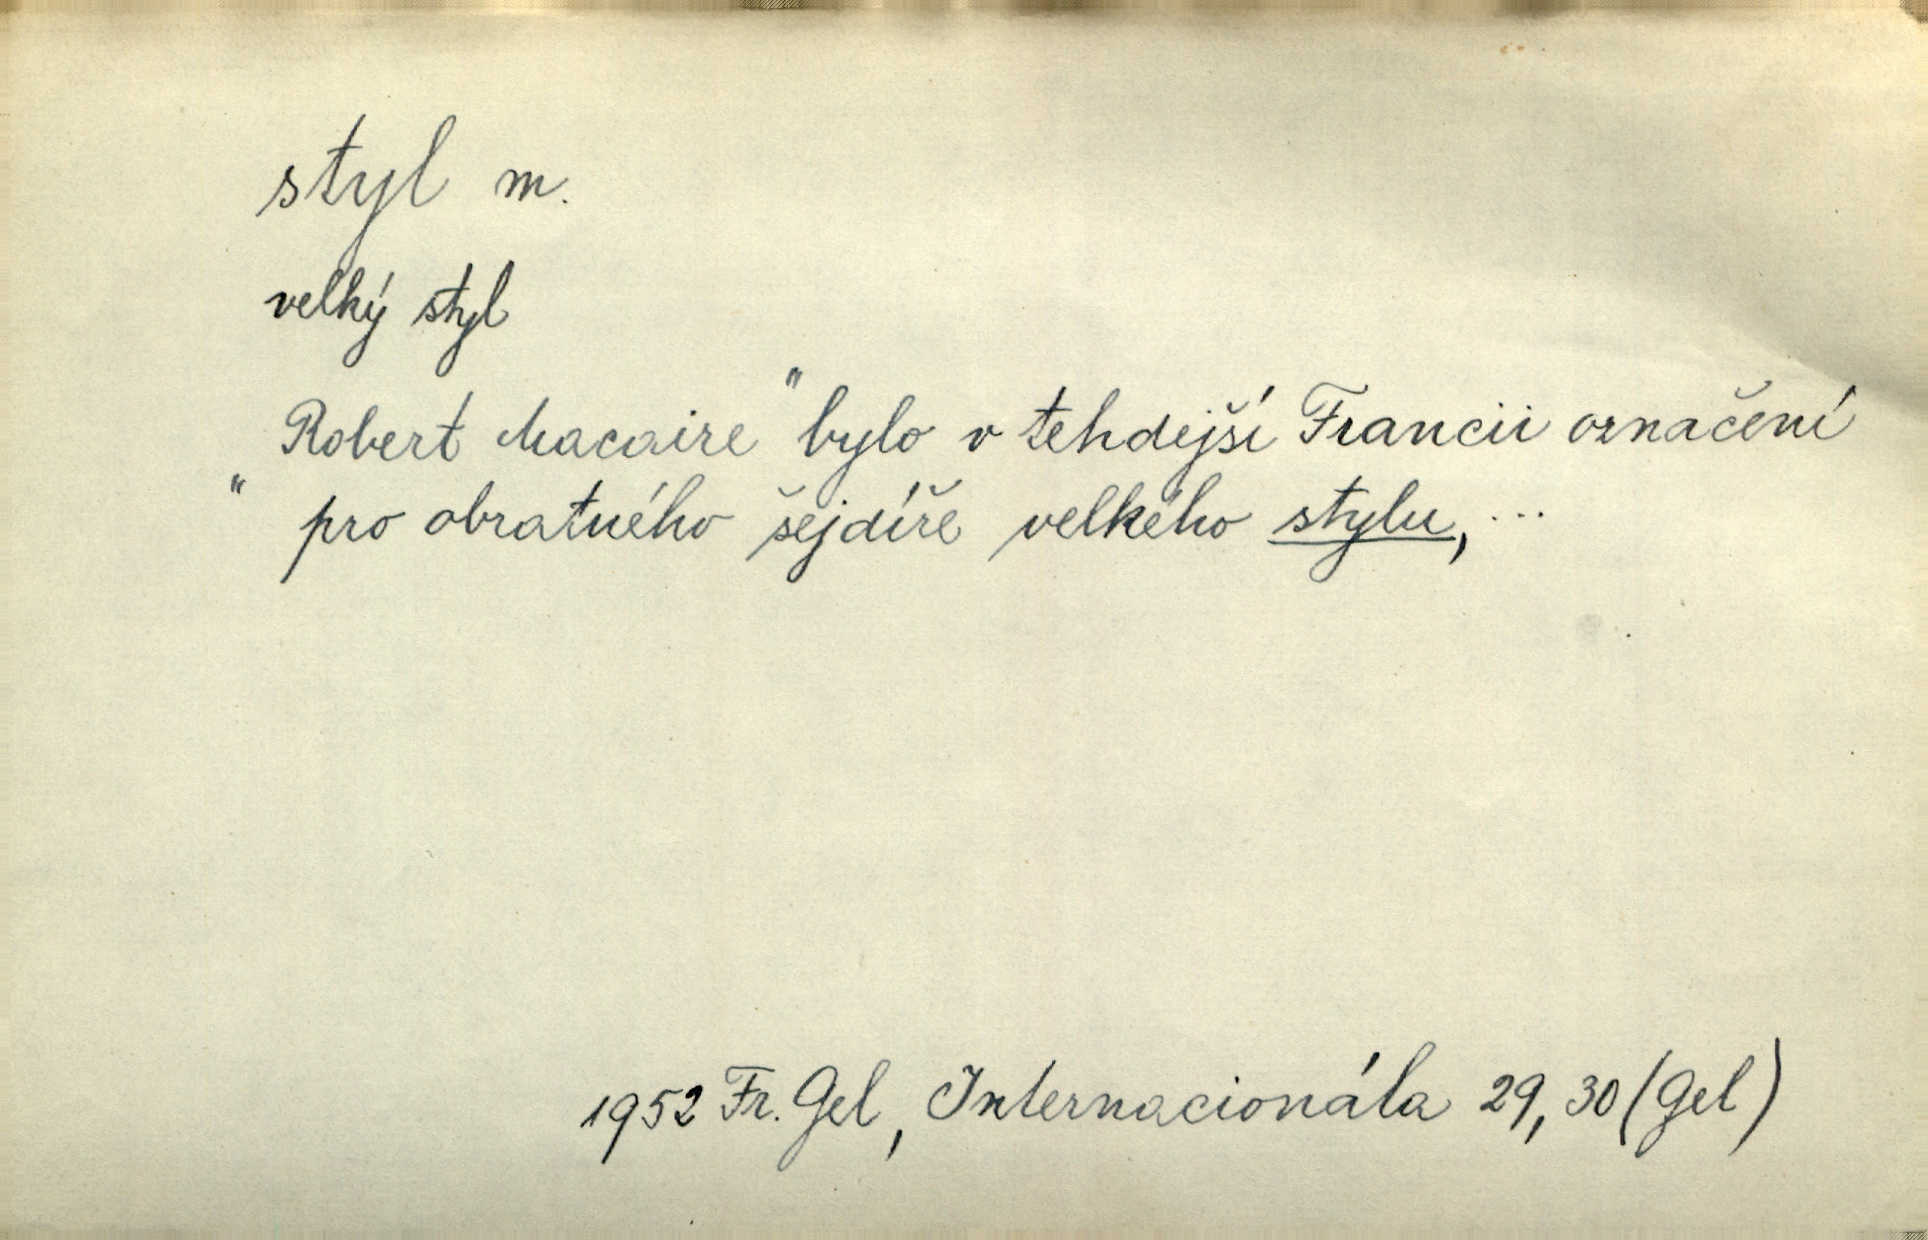 styl m.
velký styl
„Robert Macaire" bylo v tehdejší Francii označení
pro obratného šejdíře velkého stylu, ...
1952 Fr. Gel, Internacionála 29, 30 (Gel)